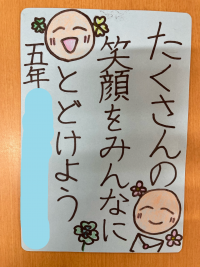 たくさんの
笑顔をみんなに
とどけよう
五年